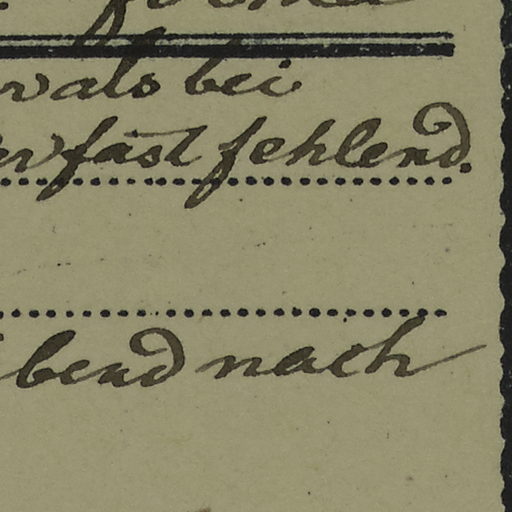 als bei
fast fehlend.
bend nach